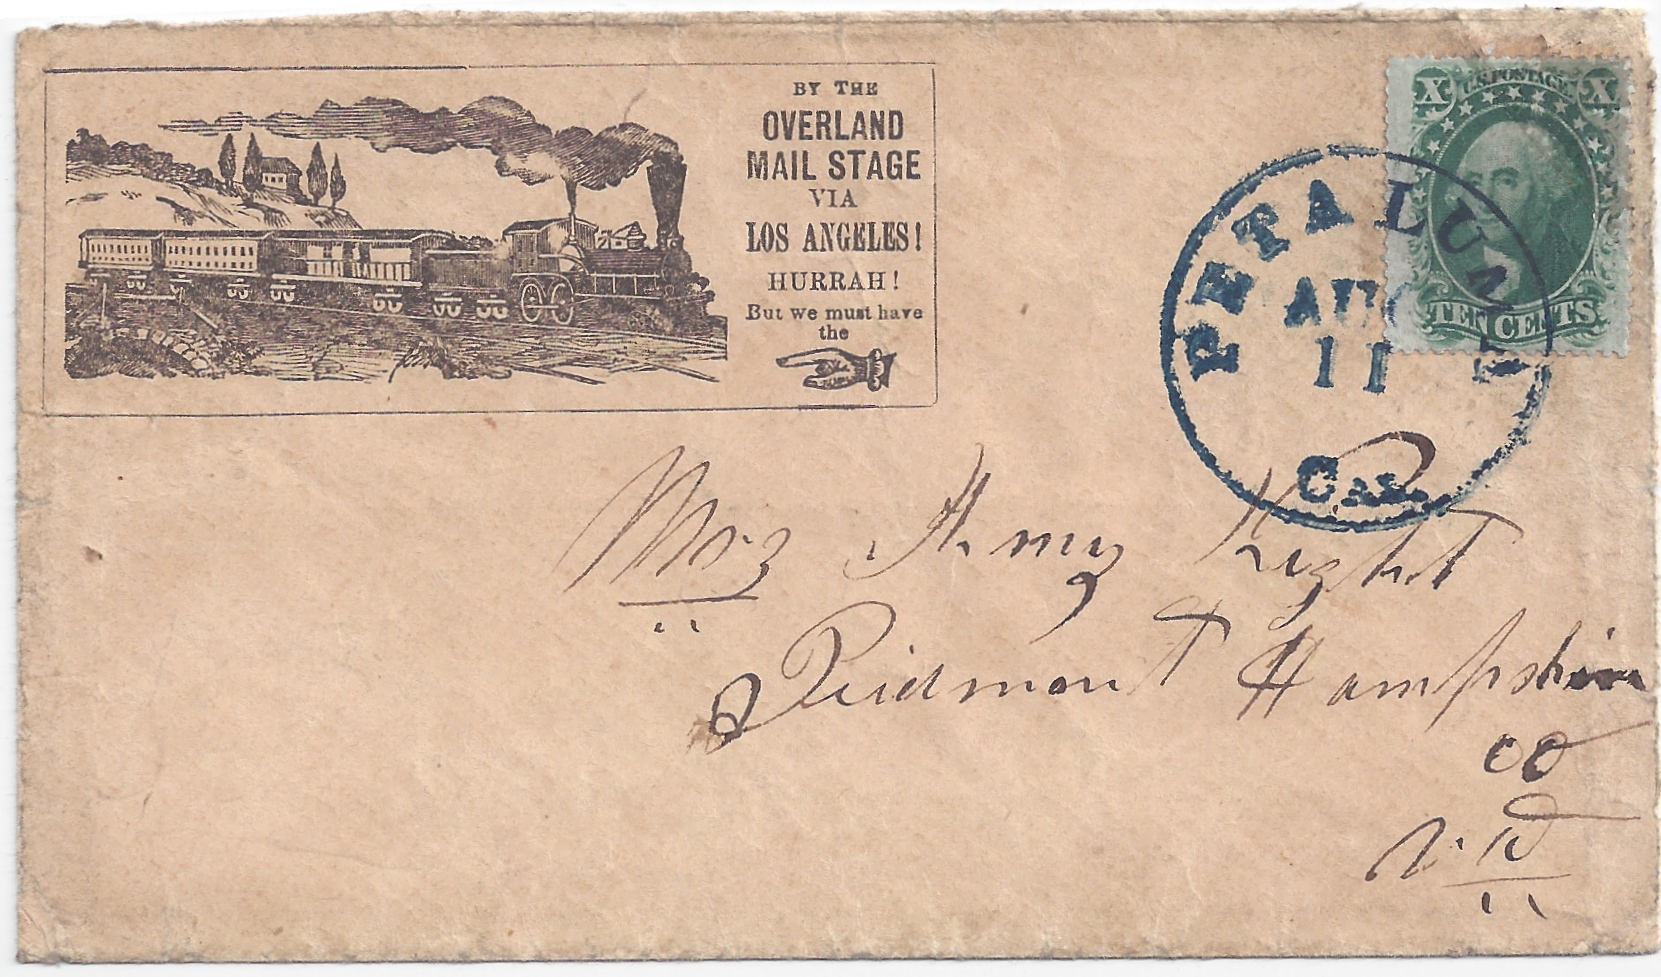 BY THE
OVERLAND
MAIL STAGE
VIA
LOS ANGELES!
HURRAH!
But we must have
the
X U.S. POSTAGE X
TEN CENTS
PETALUMA
AUG
11
Cal.
Piedmont Hampshire
Co